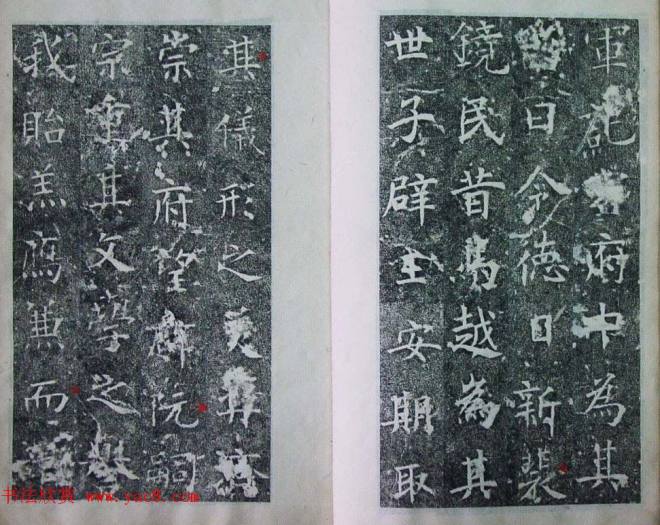 軍記府中為其
曰令德日新裴
鏡民昔馬越為其
世子辟王安期取
其儀形之美
崇其府望辟阮嗣
宗重其文學之
我貽羔鴈兼而
书法欣赏 www.yac8.com